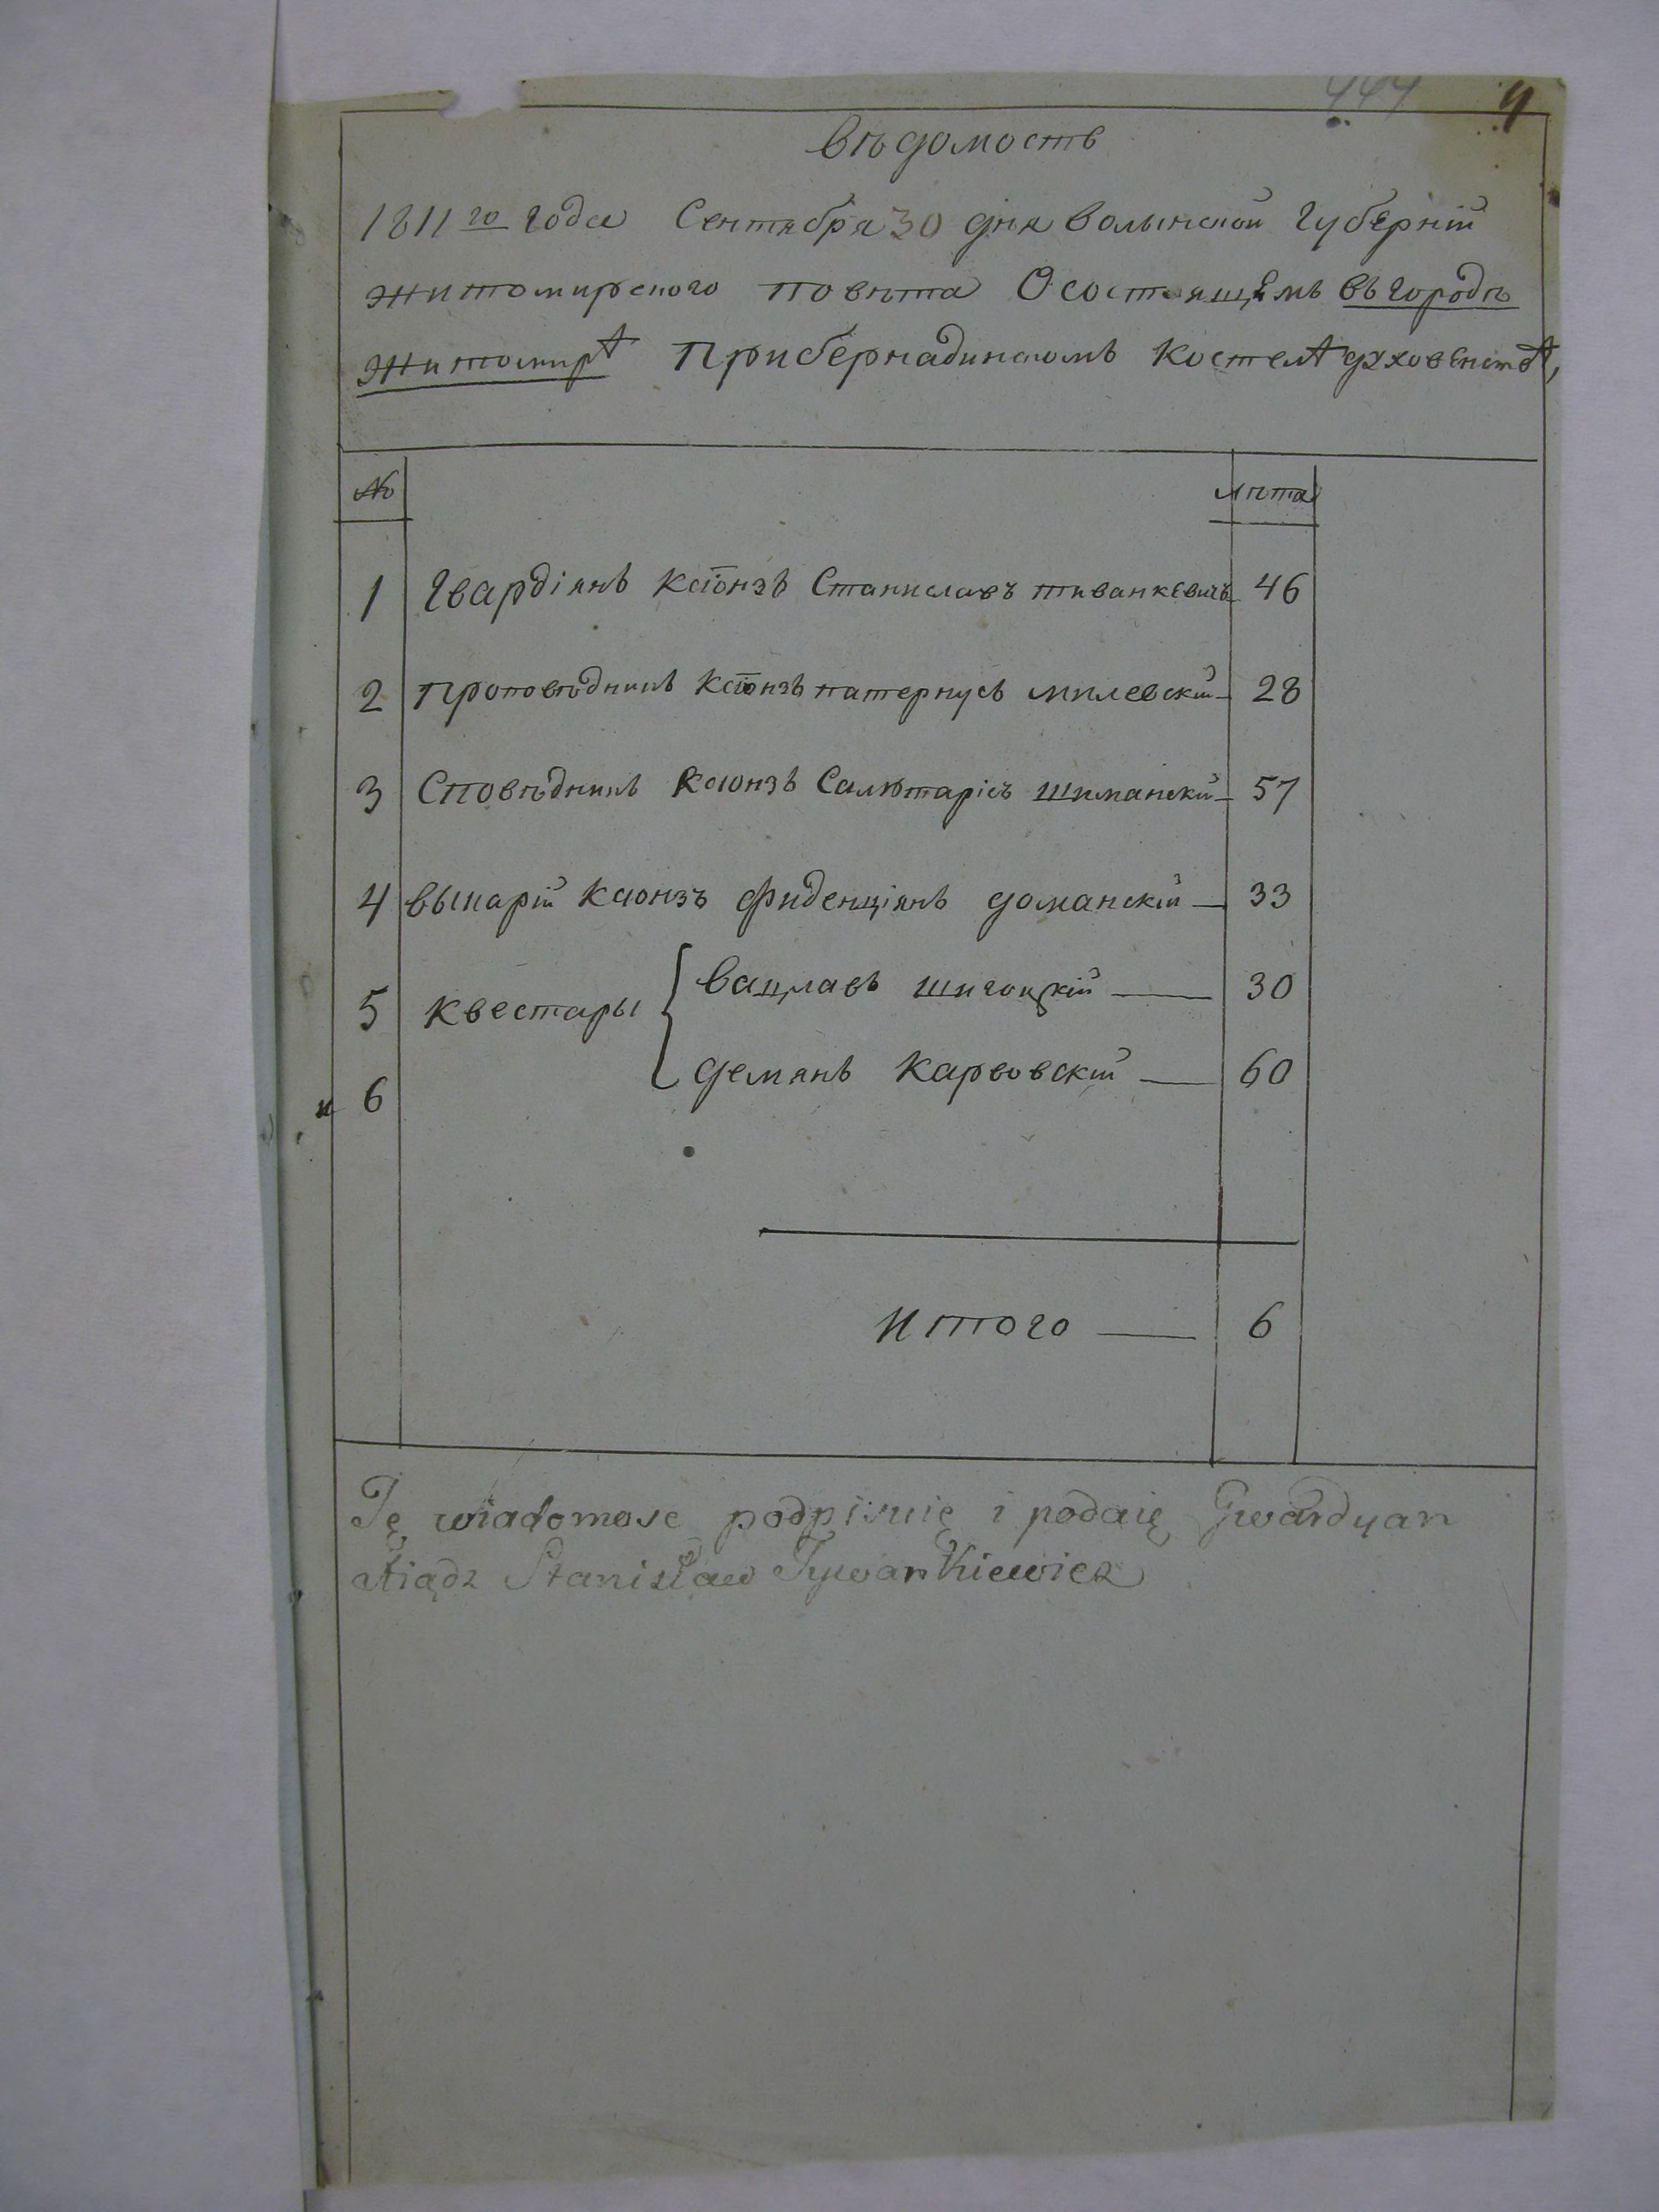 444 4
вѣдомость
1811го года Сентября 30 дня волынской губерніи
житомирского повѣта О состоящемъ въ городѣ
житомирѣ При бернадинскомъ костелѣ духовенствѣ,
№ лѣта
1 Гвардіянъ ксіонзъ Станиславъ тиванкевичъ 46
2 проповѣдникъ ксіонзъ патернусъ милевскій 28
3 Сповѣдникъ ксіонзъ Салютарісъ шиманскій 57
4 выкарій ксіонзъ фиденціянъ доманскій 33
5 квестары вацлавъ шигоцкій 30
и 6 демянъ карвовскій 60
итого 6
Tę wiadomosc podpisuię i podaię Gwardyan
Xiądz Stanisław Tywankiewicz